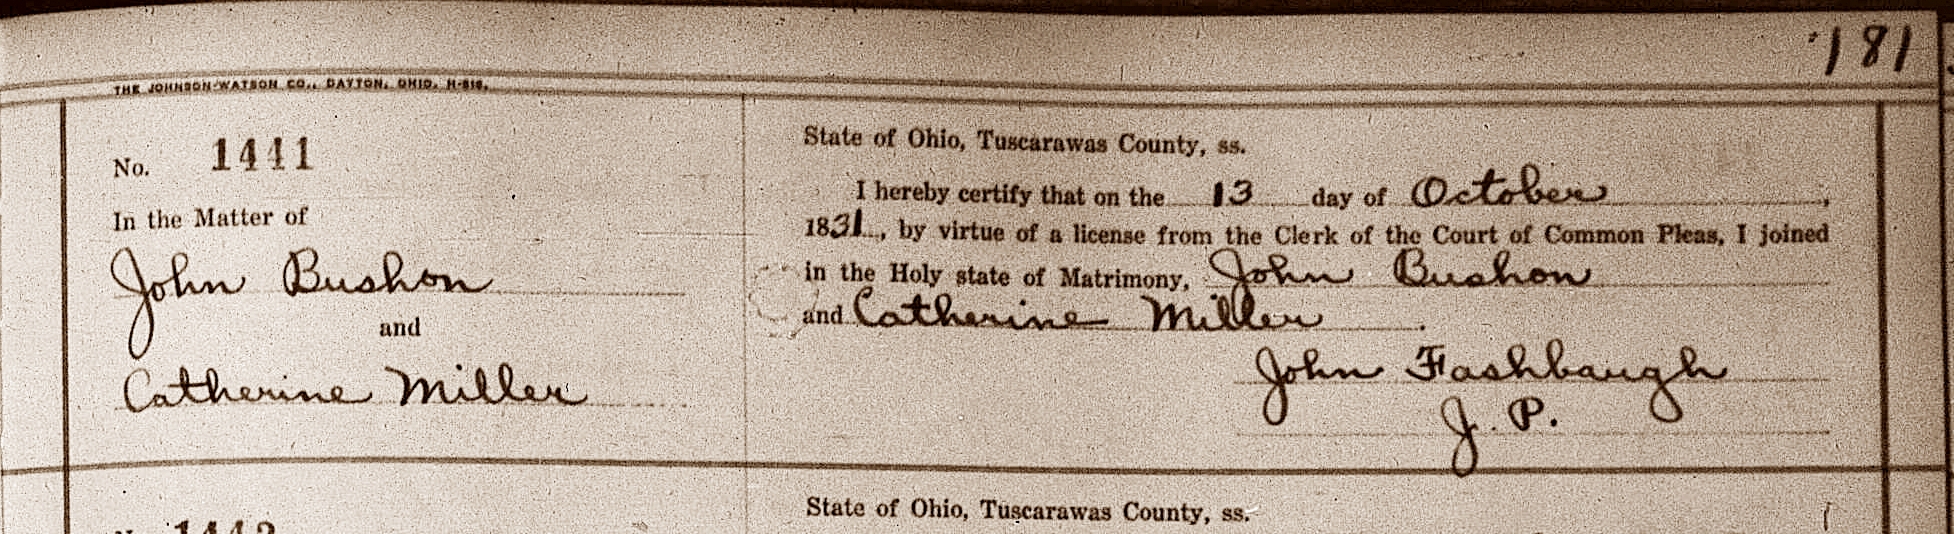 181
THE JOHNSON-WATSON CO., DAYTON, OHIO. H-816.
No. 1441
In the Matter of
John Bushon
and
Catherine Miller
State of Ohio, Tuscarawas County, ss.
I hereby certify that on the 13 day of October,
1831, by virtue of a license from the Clerk of the Court of Common Pleas, I joined
in the Holy state of Matrimony, John Bushon
and Catherine Miller.
John Fashbaugh
J. P.
1442
State of Ohio, Tuscarawas County, ss.